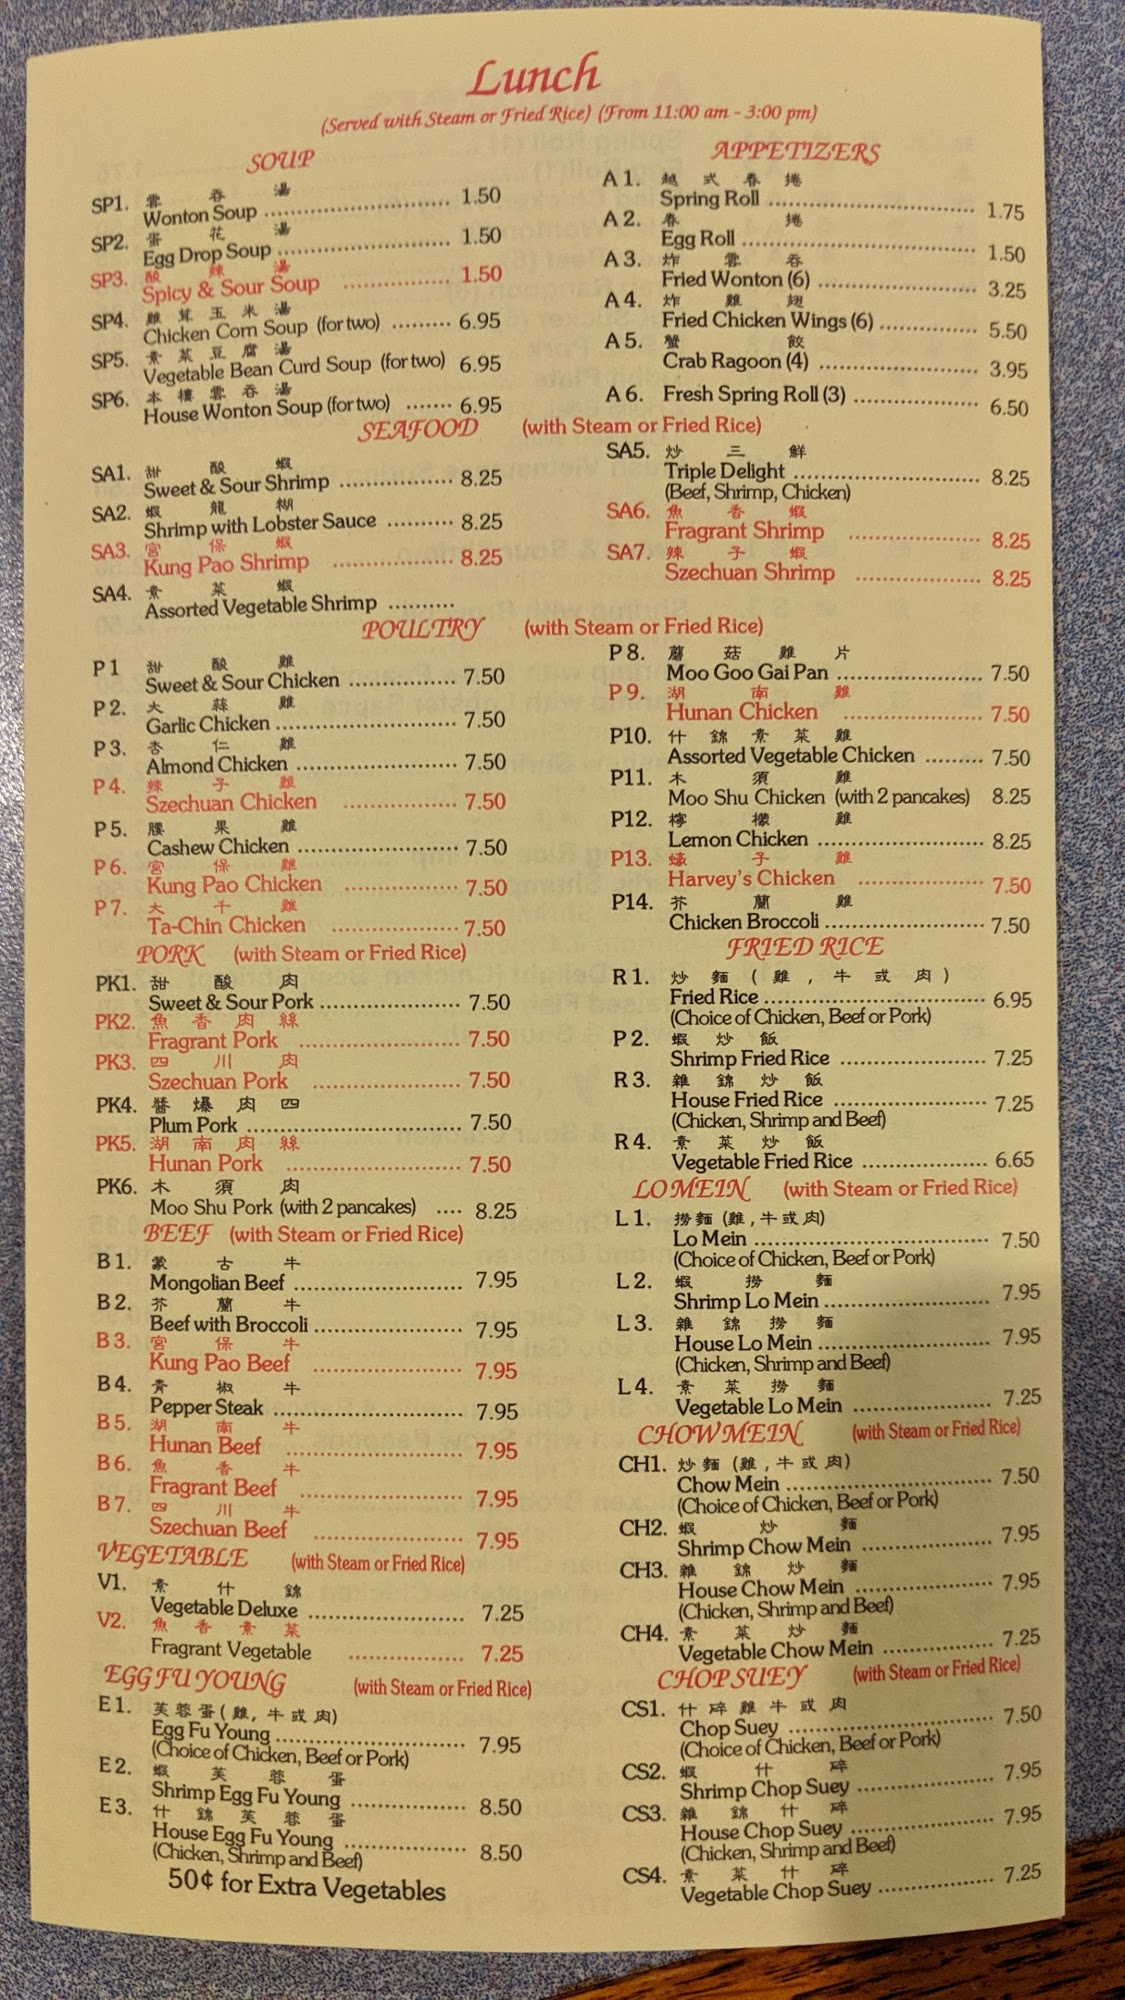 Lunch
(Served with Steam or Fried Rice) (From 11:00 am - 3:00 pm)
SOUP
SP1. 雲吞湯
Wonton Soup 1.50
SP2. 蛋花湯
Egg Drop Soup 1.50
SP3. 酸辣湯
Spicy & Sour Soup 1.50
SP4. 雞茸玉米湯
Chicken Corn Soup (for two) 6.95
SP5. 素菜豆腐湯
Vegetable Bean Curd Soup (for two) 6.95
SP6. 本樓雲吞湯
House Wonton Soup (for two) 6.95
APPETIZERS
A 1. 越式春捲
Spring Roll 1.75
A 2. 春捲
Egg Roll 1.50
A 3. 炸雲吞
Fried Wonton (6) 3.25
A 4. 炸雞翅
Fried Chicken Wings (6) 5.50
A 5. 蟹餃
Crab Ragoon (4) 3.95
A 6. Fresh Spring Roll (3) 6.50
SEAFOOD (with Steam or Fried Rice)
SA1. 甜酸蝦
Sweet & Sour Shrimp 8.25
SA2. 蝦龍糊
Shrimp with Lobster Sauce 8.25
SA3. 宮保蝦
Kung Pao Shrimp 8.25
SA4. 素菜蝦
Assorted Vegetable Shrimp
SA5. 炒三鮮
Triple Delight 8.25
(Beef, Shrimp, Chicken)
SA6. 魚香蝦
Fragrant Shrimp 8.25
SA7. 辣子蝦
Szechuan Shrimp 8.25
POULTRY (with Steam or Fried Rice)
P 1 甜酸雞
Sweet & Sour Chicken 7.50
P 2. 大蒜雞
Garlic Chicken 7.50
P 3. 杏仁雞
Almond Chicken 7.50
P 4. 辣子雞
Szechuan Chicken 7.50
P 5. 腰果雞
Cashew Chicken 7.50
P 6. 宮保雞
Kung Pao Chicken 7.50
P 7. 大千雞
Ta-Chin Chicken 7.50
P 8. 蘑菇雞片
Moo Goo Gai Pan 7.50
P 9. 湖南雞
Hunan Chicken 7.50
P10. 什錦素菜雞
Assorted Vegetable Chicken 7.50
P11. 木須雞
Moo Shu Chicken (with 2 pancakes) 8.25
P12. 檸檬雞
Lemon Chicken 8.25
P13. 蠔子雞
Harvey's Chicken 7.50
P14. 芥蘭雞
Chicken Broccoli 7.50
PORK (with Steam or Fried Rice)
PK1. 甜酸肉
Sweet & Sour Pork 7.50
PK2. 魚香肉絲
Fragrant Pork 7.50
PK3. 四川肉
Szechuan Pork 7.50
PK4. 醬爆肉四
Plum Pork 7.50
PK5. 湖南肉絲
Hunan Pork 7.50
PK6. 木須肉
Moo Shu Pork (with 2 pancakes) 8.25
BEEF (with Steam or Fried Rice)
B 1. 蒙古牛
Mongolian Beef 7.95
B 2. 芥蘭牛
Beef with Broccoli 7.95
B 3. 宮保牛
Kung Pao Beef 7.95
B 4. 青椒牛
Pepper Steak 7.95
B 5. 湖南牛
Hunan Beef 7.95
B 6. 魚香牛
Fragrant Beef 7.95
B 7. 四川牛
Szechuan Beef 7.95
VEGETABLE (with Steam or Fried Rice)
V1. 素什錦
Vegetable Deluxe 7.25
V2. 魚香素菜
Fragrant Vegetable 7.25
EGG FU YOUNG (with Steam or Fried Rice)
E 1. 芙蓉蛋(雞,牛或肉)
Egg Fu Young 7.95
(Choice of Chicken, Beef or Pork)
E 2. 蝦芙蓉蛋
Shrimp Egg Fu Young 8.50
E 3. 什錦芙蓉蛋
House Egg Fu Young 8.50
(Chicken, Shrimp and Beef)
50¢ for Extra Vegetables
FRIED RICE
R 1. 炒麵(雞,牛或肉)
Fried Rice 6.95
(Choice of Chicken, Beef or Pork)
P 2. 蝦炒飯
Shrimp Fried Rice 7.25
R 3. 雜錦炒飯
House Fried Rice 7.25
(Chicken, Shrimp and Beef)
R 4. 素菜炒飯
Vegetable Fried Rice 6.65
LO MEIN (with Steam or Fried Rice)
L 1. 撈麵(雞,牛或肉)
Lo Mein 7.50
(Choice of Chicken, Beef or Pork)
L 2. 蝦撈麵
Shrimp Lo Mein 7.95
L 3. 雜錦撈麵
House Lo Mein 7.95
(Chicken, Shrimp and Beef)
L 4. 素菜撈麵
Vegetable Lo Mein 7.25
CHOW MEIN (with Steam or Fried Rice)
CH1. 炒麵(雞,牛或肉)
Chow Mein 7.50
(Choice of Chicken, Beef or Pork)
CH2. 蝦炒麵
Shrimp Chow Mein 7.95
CH3. 雜錦炒麵
House Chow Mein 7.95
(Chicken, Shrimp and Beef)
CH4. 素菜炒麵
Vegetable Chow Mein 7.25
CHOP SUEY (with Steam or Fried Rice)
CS1. 什碎雞牛或肉
Chop Suey 7.50
(Choice of Chicken, Beef or Pork)
CS2. 蝦什碎
Shrimp Chop Suey 7.95
CS3. 雜錦什碎
House Chop Suey 7.95
(Chicken, Shrimp and Beef)
CS4. 素菜什碎
Vegetable Chop Suey 7.25